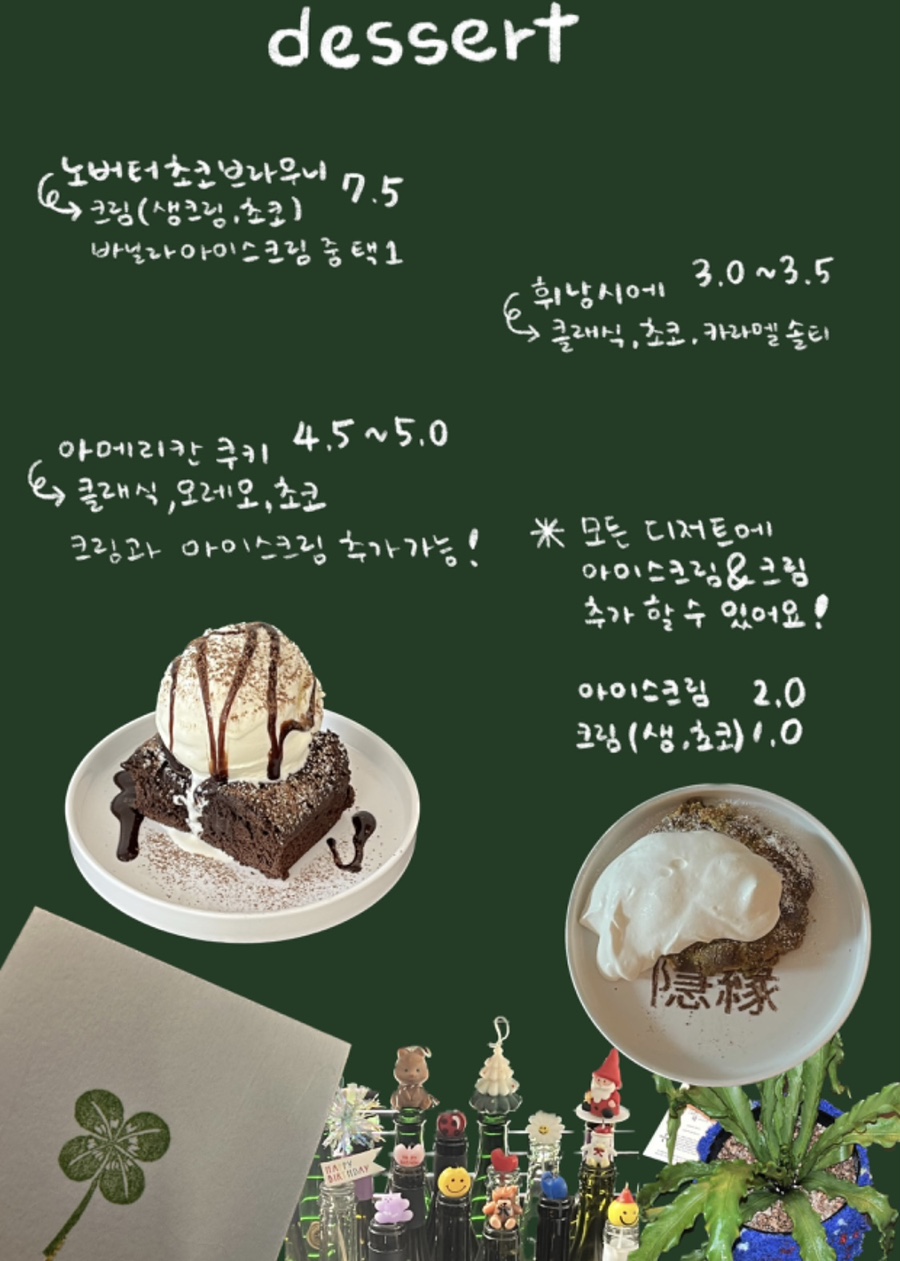 dessert
노버터초코브라우니 7.5
크림(생크림,초코)
바닐라아이스크림 중 택1
휘낭시에 3.0~3.5
클래식,초코,카라멜솔티
아메리칸 쿠키 4.5~5.0
클래식,오레오,초코
크림과 아이스크림 추가가능!
* 모든 디저트에
아이스크림&크림
추가 할수 있어요!
아이스크림 2.0
크림(생,초코) 1.0
隐縁
HAPPY
BIRTHDAY